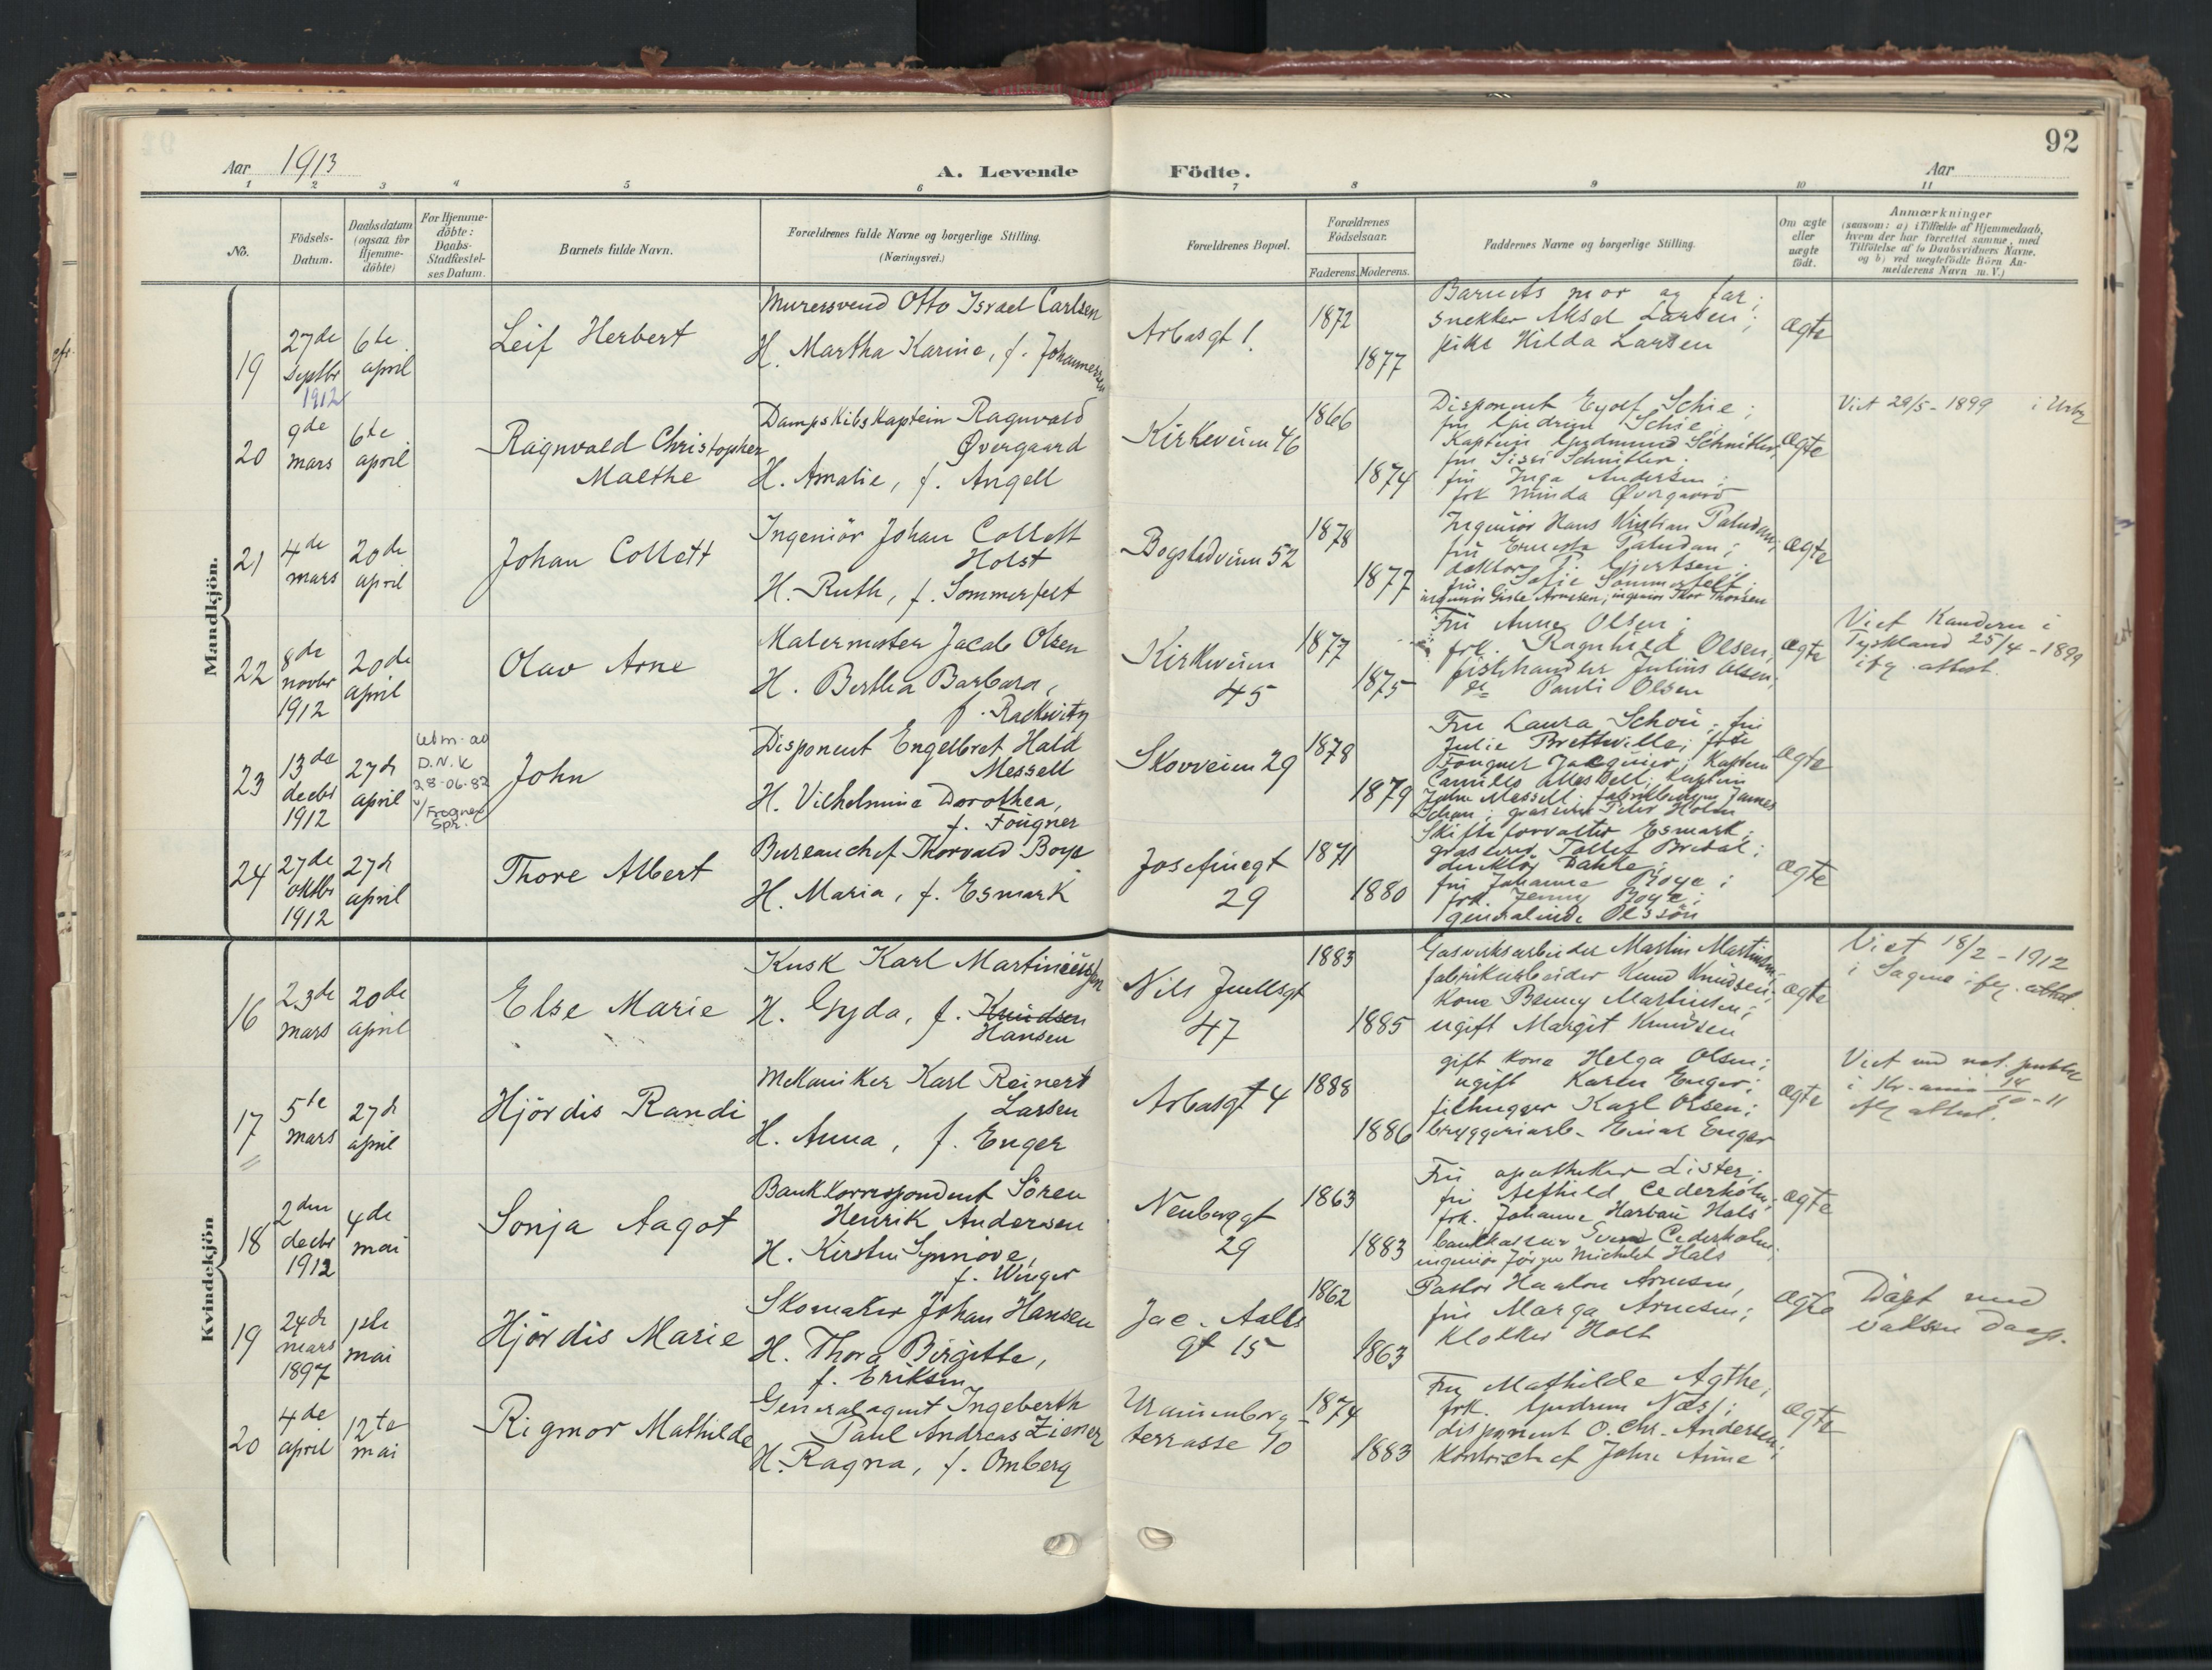 92
Aar 1913
A. Levende Födte.
Aar
1 2 3 4 5 6 7 8 9 10 11
No.
Födsels-
Datum.
Daabsdatum
(ogsaa for
Hjemme-
döbte)
For Hjemme-
döbte:
Daabs-
Stadfæstel-
ses Datum.
Barnets fulde Navn.
Forældrenes fulde Navne og borgerlige Stilling.
(Næringsvei.)
Forældrenes Bopæl.
Forældrenes
Födselsaar.
Faderens.
Moderens.
Faddernes Navne og borgerlige Stilling.
Om ægte
eller
uægte
födt.
Anmærkninger
(saasom: a) i Tilfælde af Hjemmedaab,
hvem der har forrettet samme, med
Tilföielse af to Daabsvidners Navne,
og b) ved uægtefödte Börn An-
melderens Navn m.V.)
Mandkjön.
19
27de
septbr
1912
6te
april
Leif Herbert
Murersvend Otto Israel Carlsen
H. Martha Karine, f. Johannessen
Arbosgt 1.
1872
1877
Barnets mor og far;
snekker Aksel Larsen;
pike Hilda Larsen
ægte
20
9de
mars
6te
april
Ragnvald Christopher
Malthe
Dampskibskaptein Ragnvald
Øvergaard
H. Amalie, f. Angell
Kirkeveien 46
1866
1874
Disponent Eyolf Schie;
fru Gudrun Schie;
Kaptein Gudmund Schnitler,
fru Sissi Schnitler;
fru Inga Andersen;
frk Minda Øvergaard
ægte
Viet 29/5 - 1899 i
21
4de
mars
20de
april
Johan Collett
Ingeniör Johan Collett
Holst
H. Ruth, f. Sommerfelt
Bogstadveien 52
1878
1877
Ingeniör Hans Kristian Paludan,
fru Ernesta Paludan;
doktor F. Gjertsen;
fru Sofie Sommerfelt;
ingeniör Gisle Arnesen; ingeniör Thor Thorsen
ægte
22
8de
novbr
1912
20de
april
Olav Arne
Malermester Jacob Olsen
H. Bertha Barbara,
f. Rackwitz
Kirkeveien
45
1877
1875
Fru Anna Olsen;
frk. Ragnhild Olsen,
fiskehandler Julius Olsen;
Pauli Olsen
ægte
Viet Kandern i
Tyskland 25/4 - 1899
ifg. attest.
23
13de
decbr
1912
27d
april
Utm. av
D.N.K
28-06-82
v/Frogner
Spr.
John
Disponent Engelbret Hald
Messell
H. Vilhelmine Dorothea,
f. Fougner
Skovveien 29
1878
1879
Fru Laura Schou; fru
Julie Brettville; frk
Fougner Jacquier; Kaptein
Camillo Messell; Kaptein
John Messell; fabrikeier James
Schou; grosserer Peter Holm
ægte
24
27de
oktbr
1912
27d
april
Thore Albert
Bureauchef Thorvald Boye
H. Maria, f. Esmark
Josefinegt
29
1871
1880
Skifteforvalter Esmark;
grosserer Tollef Bredal;
direktör Dahke;
fru Johanne Boye;
frk. Jenny Boye;
generalinde Olssön
ægte
Kvindekjön
16
23de
mars
20de
april
Else Marie
Kusk Karl Martiniussen
H. Gyda, f. Knudsen
Hansen
Nils Juellsgt
47
1883
1885
Gasverksarbeider Martin Martinsen;
fabrikarbeider Knud Knudsen;
Kone Benny Martinsen;
ugift Margit Knudsen
ægte
Viet 18/2 - 1912
i Sagene ifg. attest.
17
5te
mars
27d
april
Hjördis Randi
Mekaniker Karl Reinert
Larsen
H. Anna, f. Enger
Arbosgt 4
1888
1886
gift kone Helga Olsen;
ugift Karen Enger;
filhugger Karl Olsen;
bryggeriarb. Einar Enger
ægte
Viet ved not. publ.
i Kr.ania 14/10 - 11
ifg attest.
18
2den
decbr
1912
4de
mai
Sonja Aagot
Bankkorrespondent Sören
Henrik Andersen
H. Kirsten Synnöve,
f. Winger
Neuberggt
29
1863
1883
Fru apotheker Lister;
fru Aethild Cederholm;
frk. Johanne Harboe Hals
bankkasser Svend Cederholm;
ingeniör Jörgen Michelet Hals
ægte
19
24de
mars
1897
1ste
mai
Hjördis Marie
Skomaker Johan Hansen
H. Thora Birgitte,
f. Eriksen
Jac. Aalls
gt 15
1862
1863
Pastor Haakon Arnesen,
fru Marga Arnesen;
Klokker Holt
ægte
Döpt med
voksen daap.
20
4de
april
12te
mai
Rigmor Mathilde
Generalagent Ingeberth
Paul Andreas Ziener
H. Ragna, f. Omberg
Uranienborg
terrasse 10
1874
1883
Fru Mathilde Agthe;
frk. Gudrun Næss;
disponent O. Chr. Andersen;
Kontorchef John Aime
ægte